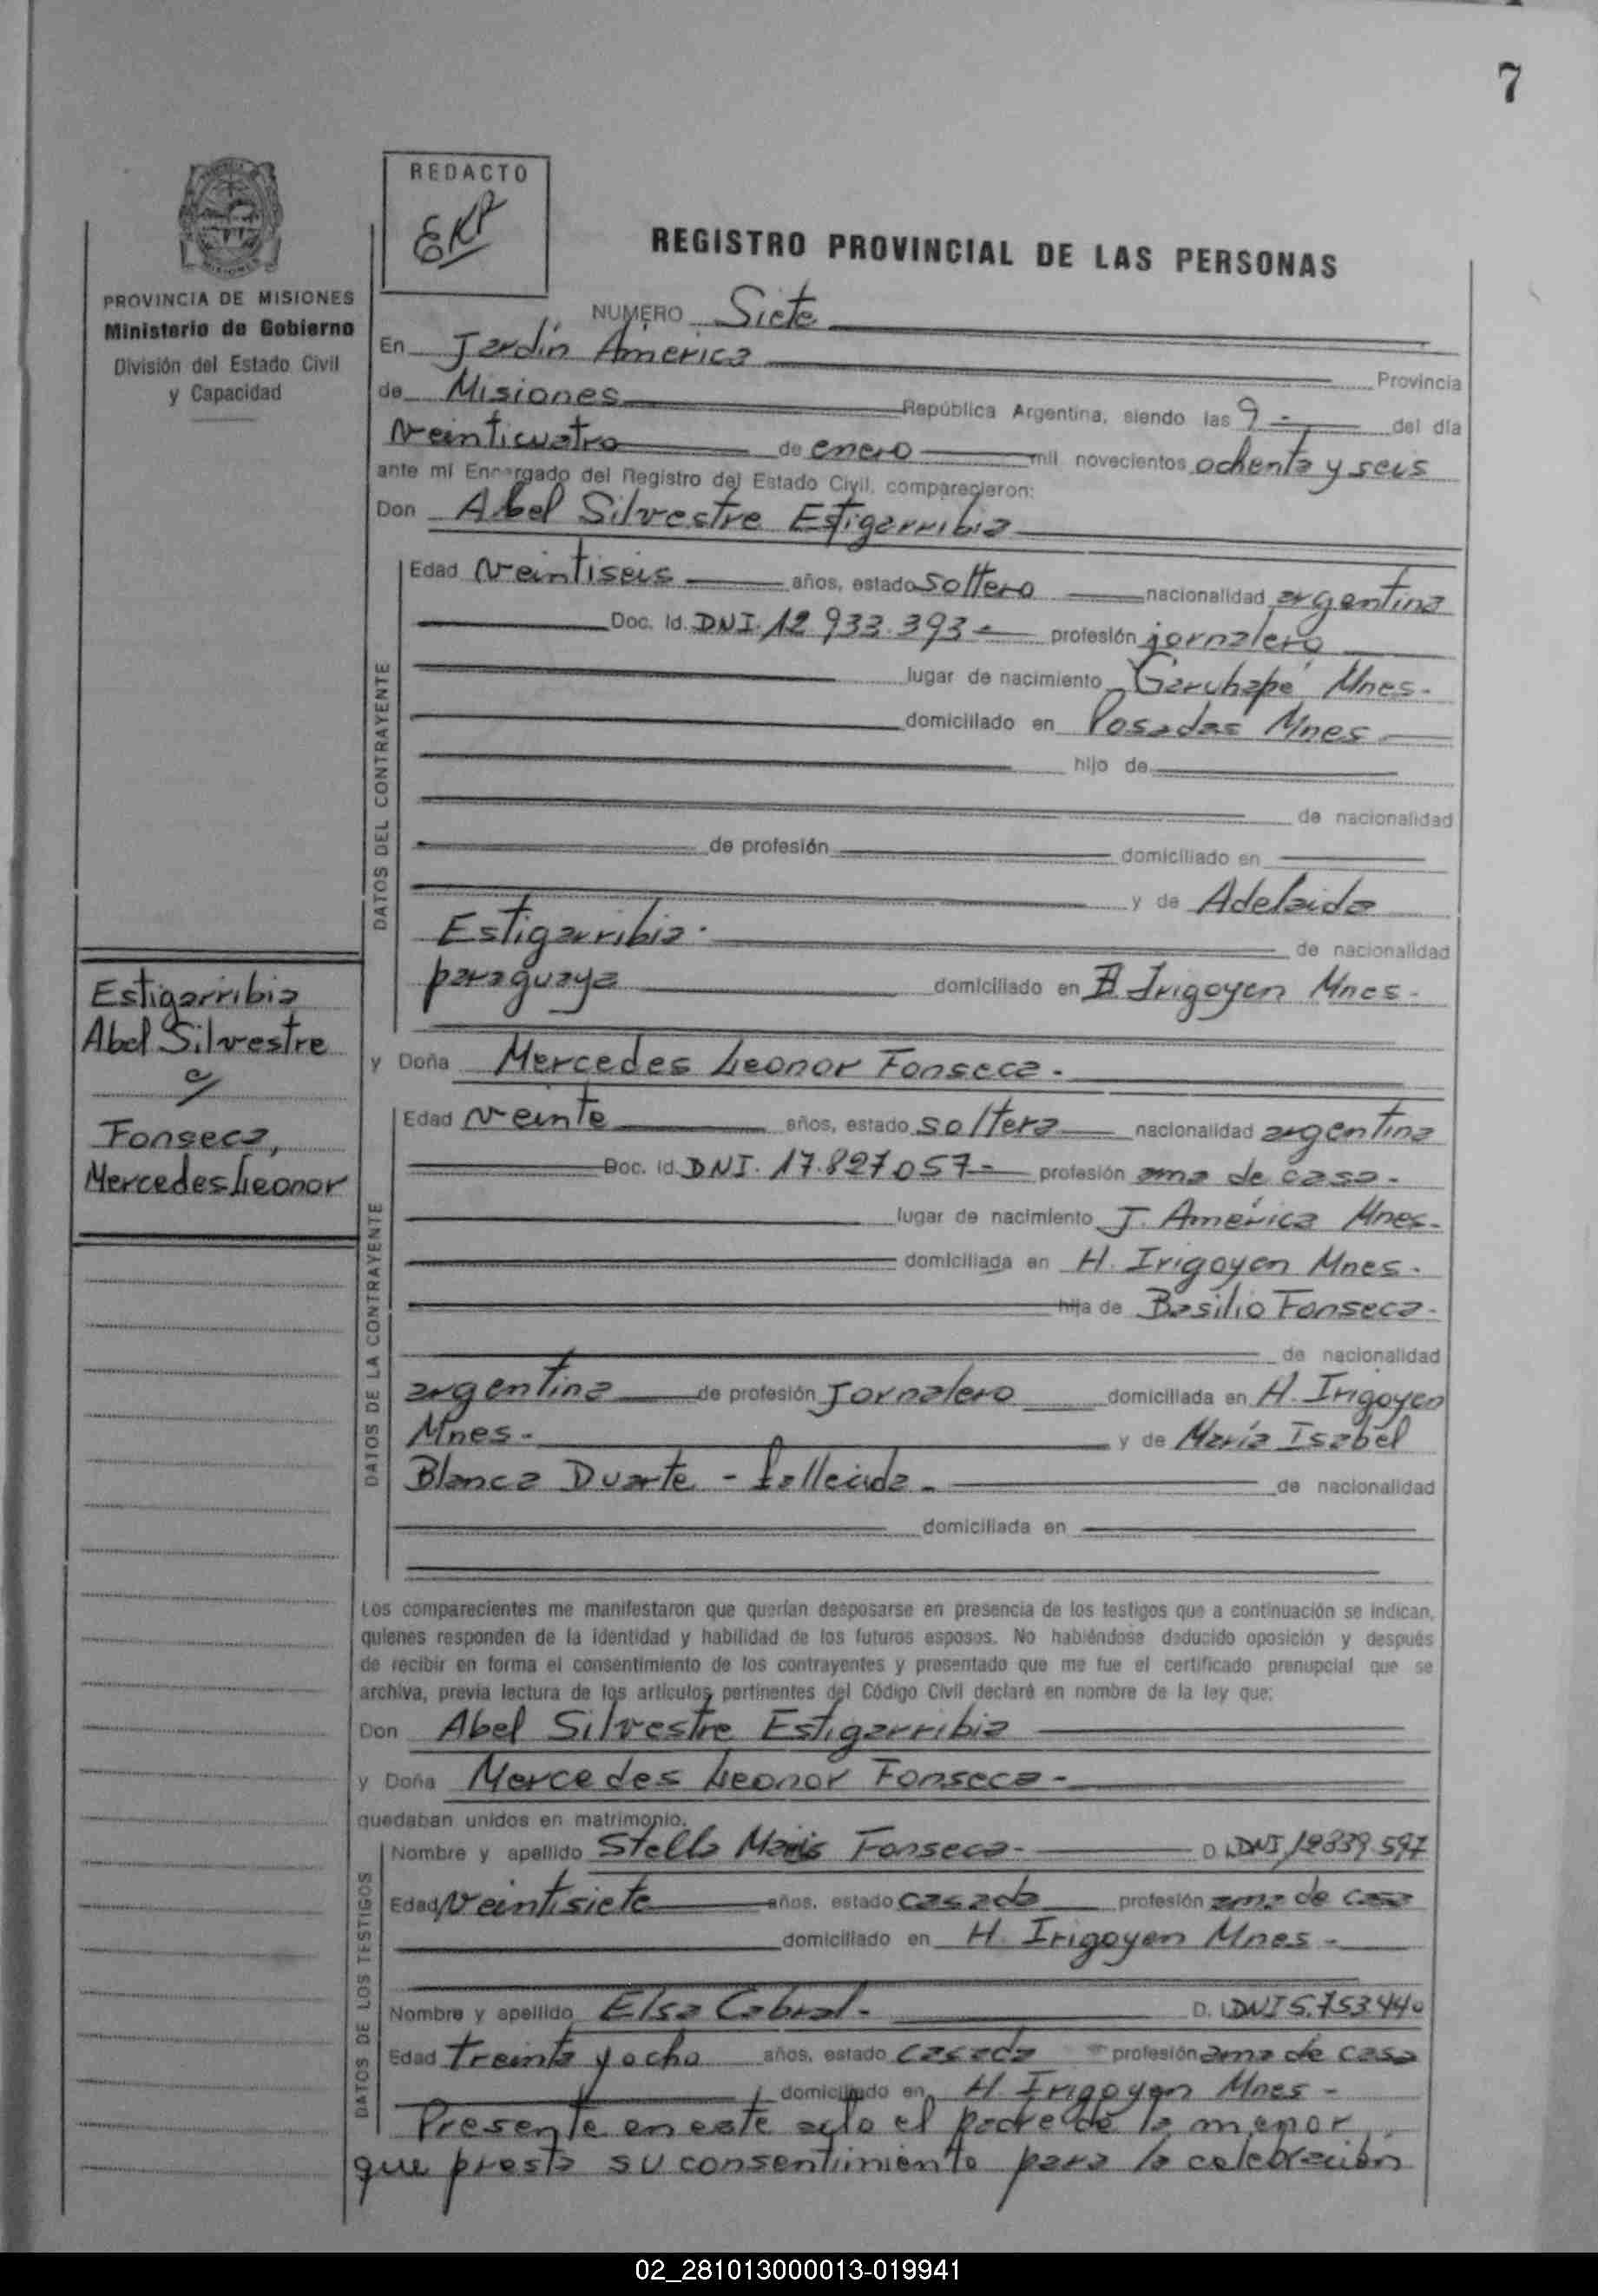 7
REDACTO
EKP
PROVINCIA DE MISIONES
Ministerio de Gobierno
División del Estado Civil
y Capacidad
REGISTRO PROVINCIAL DE LAS PERSONAS
NUMERO Siete
En Jardín América Provincia
de Misiones República Argentina, siendo las 9 - del día
veinticuatro de enero mil novecientos ochenta y seis
ante mi Encargado del Registro del Estado Civil, comparecieron:
Don Abel Silvestre Estigarribia
DATOS DEL CONTRAYENTE
Edad veintiseis años, estado soltero nacionalidad argentina
Doc. Id. DNI. 12.933.393 - profesión jornalero
lugar de nacimiento Garuhapé Mnes.
domiciliado en Posadas Mnes
hijo de
de nacionalidad
de profesión domiciliado en
y de Adelaida
Estigarribia. de nacionalidad
paraguaya domiciliado en H Irigoyen Mnes-
Estigarribia
Abel Silvestre
c/
Fonseca,
Mercedes Leonor
y Doña Mercedes Leonor Fonseca.
DATOS DE LA CONTRAYENTE
Edad veinte años, estado soltera nacionalidad argentina
Doc. Id. DNI. 17.827.057 - profesión ama de casa -
lugar de nacimiento J. América Mnes-
domiciliada en H. Irigoyen Mnes.
hija de Basilio Fonseca-
de nacionalidad
argentina de profesión Jornalero domiciliada en H. Irigoyen
Mnes - y de María Isabel
Blanca Duarte - fallecida - de nacionalidad
domiciliada en
Los comparecientes me manifestaron que querían desposarse en presencia de los testigos que a continuación se indican,
quienes responden de la identidad y habilidad de los futuros esposos. No habiéndose deducido oposición y después
de recibir en forma el consentimiento de los contrayentes y presentado que me fue el certificado prenupcial que se
archiva, previa lectura de los artículos pertinentes del Código Civil declaré en nombre de la ley que:
Don Abel Silvestre Estigarribia
y Doña Mercedes Leonor Fonseca -
quedaban unidos en matrimonio.
DATOS DE LOS TESTIGOS
Nombre y apellido Stella Maris Fonseca - D. I. DNI 12339.597
Edad veintisiete años, estado casada profesión ama de casa
domiciliado en H. Irigoyen Mnes -
Nombre y apellido Elsa Cabral - D. I. DNI 5.753.440
Edad treinta y ocho años, estado casada profesión ama de casa
domiciliado en H. Irigoyen Mnes -
Presente en este acto el padre de la menor
que presta su consentimiento para la celebración
02_281013000013-019941